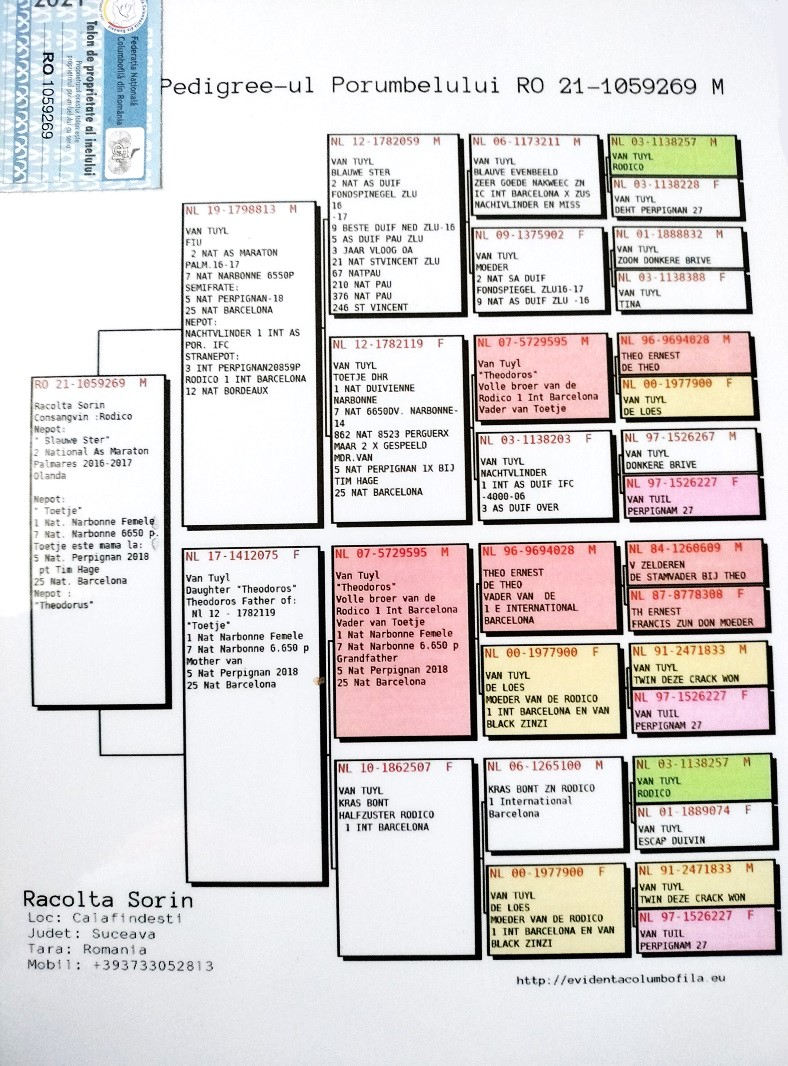 2021
Federația Națională
Columbofilă din România
Talon de proprietate al inelului
RO 1059269
Pedigree-ul Porumbelului RO 21-1059269 M
RO 21-1059269 M
Racolta Sorin
Consangvin :Rodico
Nepot:
" Blauwe Ster"
2 National As Maraton
Palmares 2016-2017
Olanda
Nepot:
" Toetje"
1 Nat. Narbonne Femele
7 Nat. Narbonne 6650 p.
Toetje este mama la:
5 Nat. Perpignan 2018
pt Tim Hage
25 Nat. Barcelona
Nepot :
"Theodorus"
NL 19-1798813 M
VAN TUYL
FIU
2 NAT AS MARATON
PALM.16-17
7 NAT NARBONNE 6550P
SEMIFRATE:
5 NAT PERPIGNAN-18
25 NAT BARCELONA
NEPOT:
NACHTVLINDER 1 INT AS
POR. IFC
STRANEPOT:
3 INT PERPIGNAN20859P
RODICO 1 INT BARCELONA
12 NAT BORDEAUX
NL 17-1412075 F
Van Tuyl
Daughter "Theodoros"
Theodoros Father of:
Nl 12 - 1782119
"Toetje"
1 Nat Narbonne Femele
7 Nat Narbonne 6.650 p
Mother van
5 Nat Perpignan 2018
25 Nat Barcelona
NL 12-1782059 M
VAN TUYL
BLAUWE STER
2 NAT AS DUIF
FONDSPINEGEL ZLU
16
-17
9 BESTE DUIF NED ZLU-16
5 AS DUIF PAU ZLU
3 JAAR VLOOG OA
21 NAT STVINCENT ZLU
67 NATPAU
210 NAT PAU
376 NAT PAU
246 ST VINCENT
NL 12-1782119 F
VAN TUYL
TOETJE DHR
1 NAT DUIVIENNE
NARBONNE
7 NAT 6650DV. NARBONNE-
14
862 NAT 8523 PERGUERX
MAAR 2 X GESPEELD
MDR.VAN
5 NAT PERPIGNAN 1X BIJ
TIM HAGE
25 NAT BARCELONA
NL 07-5729595 M
Van Tuyl
"Theodoros"
Volle broer van de
Rodico 1 Int Barcelona
Vader van Toetje
1 Nat Narbonne Femele
7 Nat Narbonne 6.650 p
Grandfather
5 Nat Perpignan 2018
25 Nat Barcelona
NL 10-1862507 F
VAN TUYL
KRAS BONT
HALFZUSTER RODICO
1 INT BARCELONA
NL 06-1173211 M
VAN TUYL
BLAUVE EVENBEELD
ZEER GOEDE NAKWEEC ZN
IC INT BARCELONA X ZUS
NACHIVLINDER EN MISS
NL 09-1375902 F
VAN TUYL
MOEDER
2 NAT SA DUIF
FONDSPIEGEL ZLU16-17
9 NAT AS DUIF ZLU -16
NL 07-5729595 M
Van Tuyl
"Theodoros"
Volle broer van de
Rodico 1 Int Barcelona
Vader van Toetje
NL 03-1138203 F
VAN TUYL
NACHTVLINDER
1 INT AS DUIF IFC
-4000-06
3 AS DUIF OVER
NL 96-9694028 M
THEO ERNEST
DE THEO
VADER VAN DE
1 E INTERNATIONAL
BARCELONA
NL 00-1977900 F
VAN TUYL
DE LOES
MOEDER VAN DE RODICO
1 INT BARCELONA EN VAN
BLACK ZINZI
NL 06-1265100 M
KRAS BONT ZN RODICO
1 International
Barcelona
NL 00-1977900 F
VAN TUYL
DE LOES
MOEDER VAN DE RODICO
1 INT BARCELONA EN VAN
BLACK ZINZI
NL 03-1138257 M
VAN TUYL
RODICO
NL 03-1138228 F
VAN TUYL
DEHT PERPIGNAN 27
NL 01-1888832 M
VAN TUYL
ZOON DONKERE BRIVE
NL 03-1138388 F
VAN TUYL
TINA
NL 96-9694028 M
THEO ERNEST
DE THEO
NL 00-1977900 F
VAN TUYL
DE LOES
NL 97-1526267 M
VAN TUYL
DONKERE BRIVE
NL 97-1526227 F
VAN TUIL
PERPIGNAM 27
NL 84-1260609 M
V ZELDEREN
DE STAMVADER BIJ THEO
NL 87-8778308 F
TH ERNEST
FRANCIS ZUN DON MOEDER
NL 91-2471833 M
VAN TUYL
TWIN DEZE CRACK WON
NL 97-1526227 F
VAN TUIL
PERPIGNAM 27
NL 03-1138257 M
VAN TUYL
RODICO
NL 01-1889074 F
VAN TUYL
ESCAP DUIVIN
NL 91-2471833 M
VAN TUYL
TWIN DEZE CRACK WON
NL 97-1526227 F
VAN TUIL
PERPIGNAM 27
Racolta Sorin
Loc: Calafindesti
Judet: Suceava
Tara: Romania
Mobil: +393733052813
http://evidentacolumbofila.eu